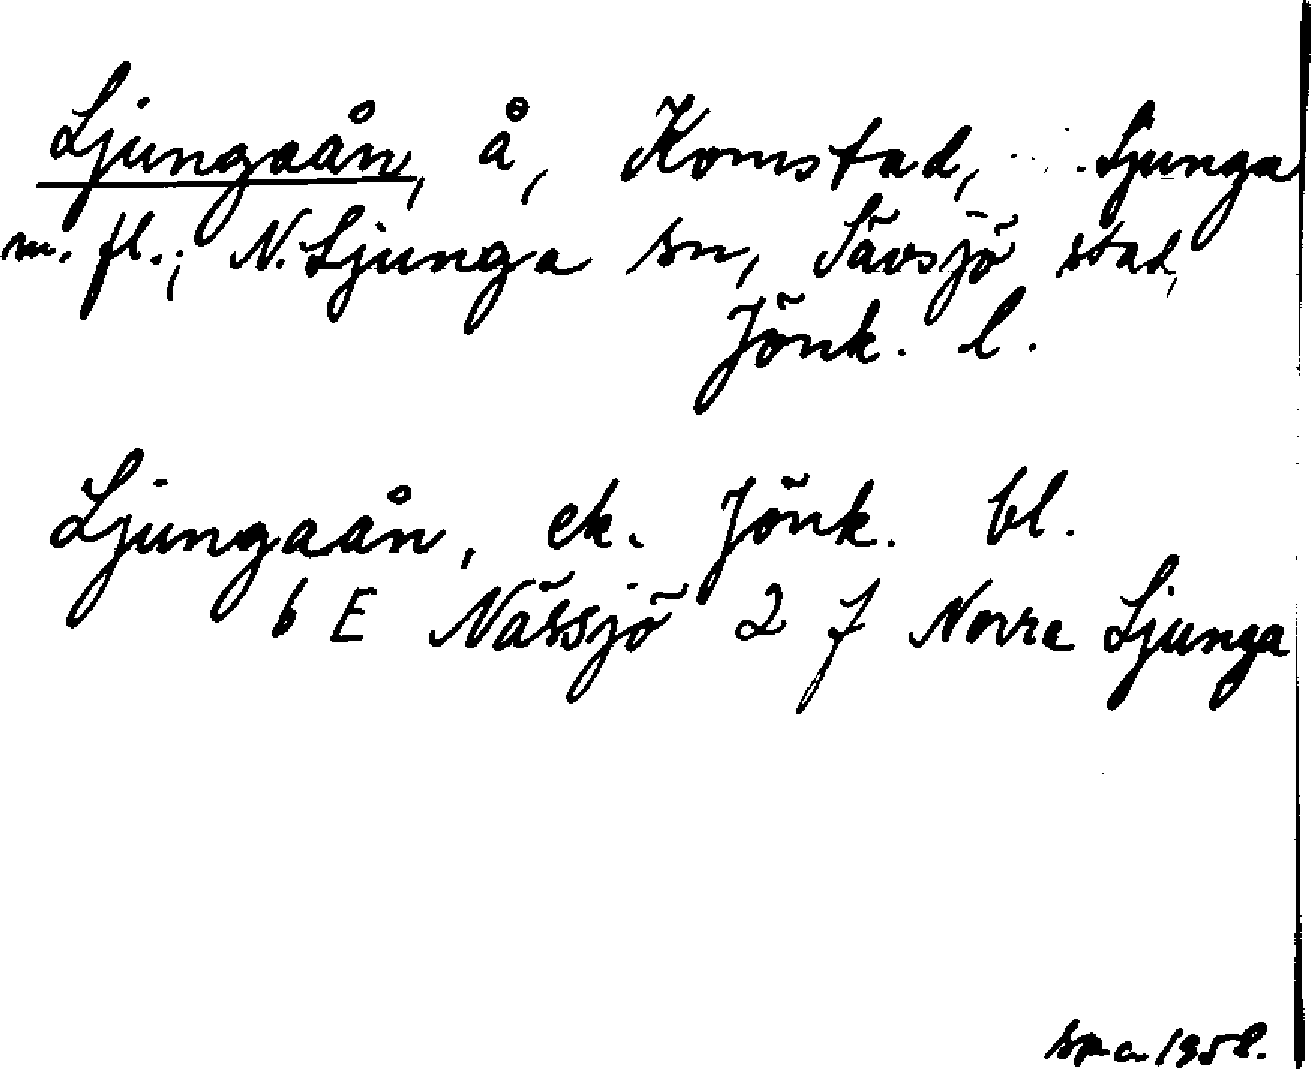 Ljungaån, å, Komstad, Ljunga
m. fl.; N. Ljunga sn, Sävsjö stad,
Jönk. l.
Ljungaån, ek. Jönk. bl.
6 E Nässjö 2 f Norra Ljunga
1958.